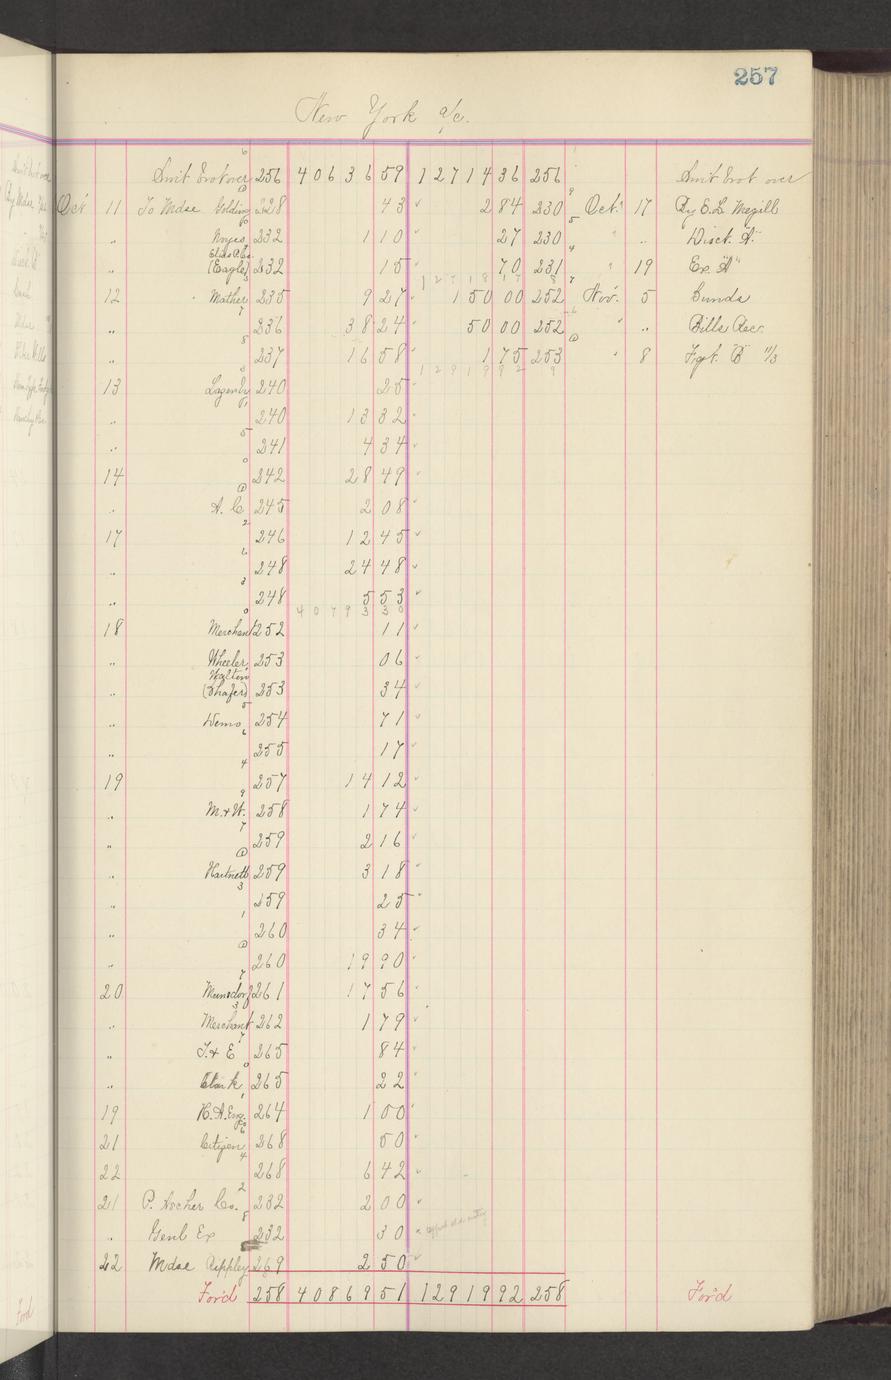 257
New York a/c.
Amt brot over 256 40636 59 12714 36 256 Amt brot over
Oct 11 To Mdse Golding 228 43 2 84 230 Oct. 17 By E.L. Megill
" Noyes 232 1 10 27 230 " " Disct. A"
" (Eagle) 232 15 70 231 " 19 Ex. "A"
12718 17 8
12 " Mather 235 9 27 150 00 252 Nov. 5 Sunds
" 236 38 24 50 00 252 " " Bills Rec.
" 237 16 58 1 75 253 " 8 Frgt. B 11/3
12919 92 9
13 240 25
" 240 13 32
" 241 4 34
14 242 28 49
" A. C 245 2 08
17 246 12 45
" 248 24 48
" 248 5 53
40793 30
18 Merchant 252 11
" Wheeler 253 06
" Walton (Shafer) 253 34
" Demo 254 71
" 255 17
19 257 14 12
" M. & W. 258 1 74
" 259 2 16
" Hartnett 259 3 18
" 259 25
" 260 34
" 260 19 90
20 Munsdorf 261 17 56
" Merchant 262 1 79
" J. & E 265 84
" Clark 265 22
19 H. A. Eng. 264 1 00
21 Citizen 268 50
22 268 6 42
21 P. Ascher Co. 232 2 00
" Genl Ex 232 30
22 Mdse Rippley 269 2 50
For'd 258 40869 51 12919 92 258 For'd